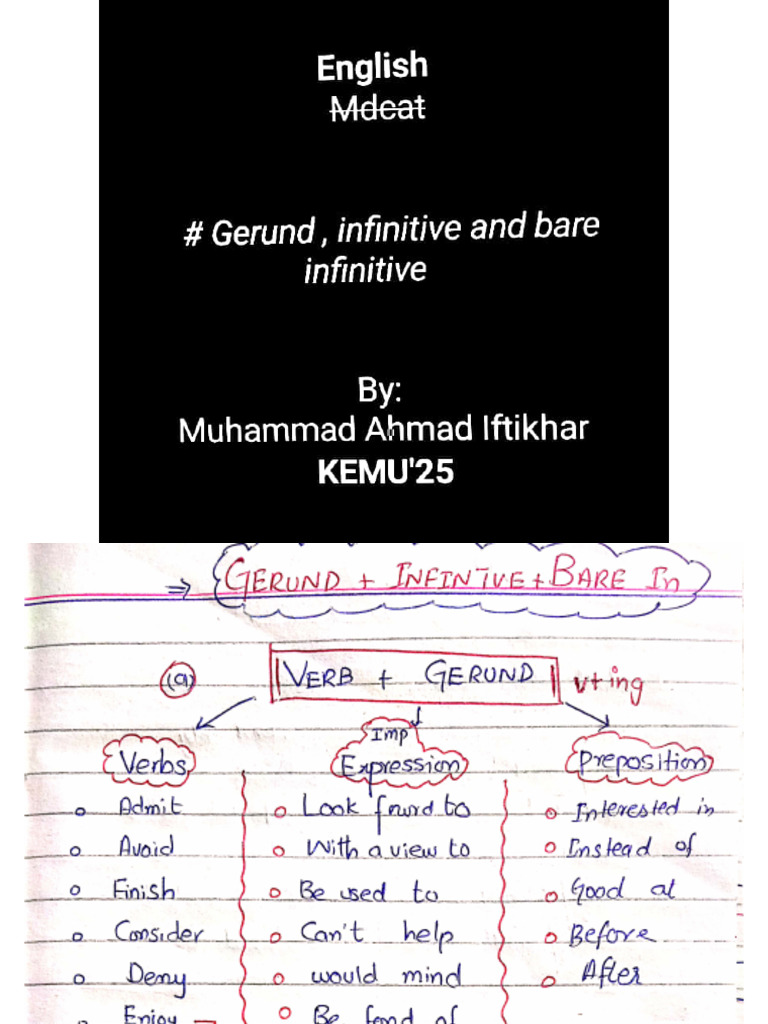 English
Mdcat
# Gerund , infinitive and bare
infinitive
By:
Muhammad Ahmad Iftikhar
KEMU'25
⇒ GERUND + INFINTIVE + BARE In
(a) VERB + GERUND v+ing
Verbs Imp Expression Preposition
Admit Look frwrd to Interested in
Avoid With a view to Instead of
Finish Be used to Good at
Consider Can't help Before
Deny would mind After
Enjoy Be fond of